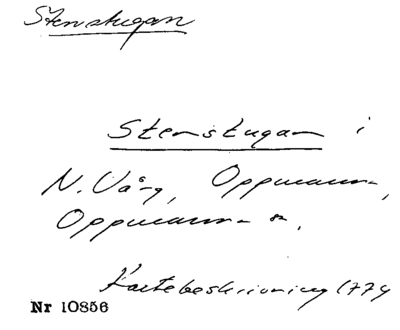 Stenstugan
Stenstugan i
N. Vång, Oppmanna,
Oppmanna sn,
Kartebeskrivning 1774
Nr 10856